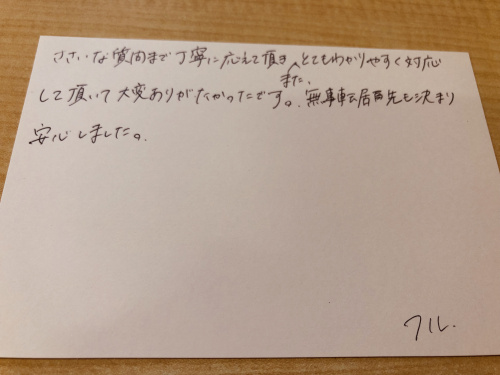 ささいな質問まで丁寧に応えて頂き、また、とてもわかりやすく対応
して頂いて大変ありがたかったです。無事転居先も決まり
安心しました。